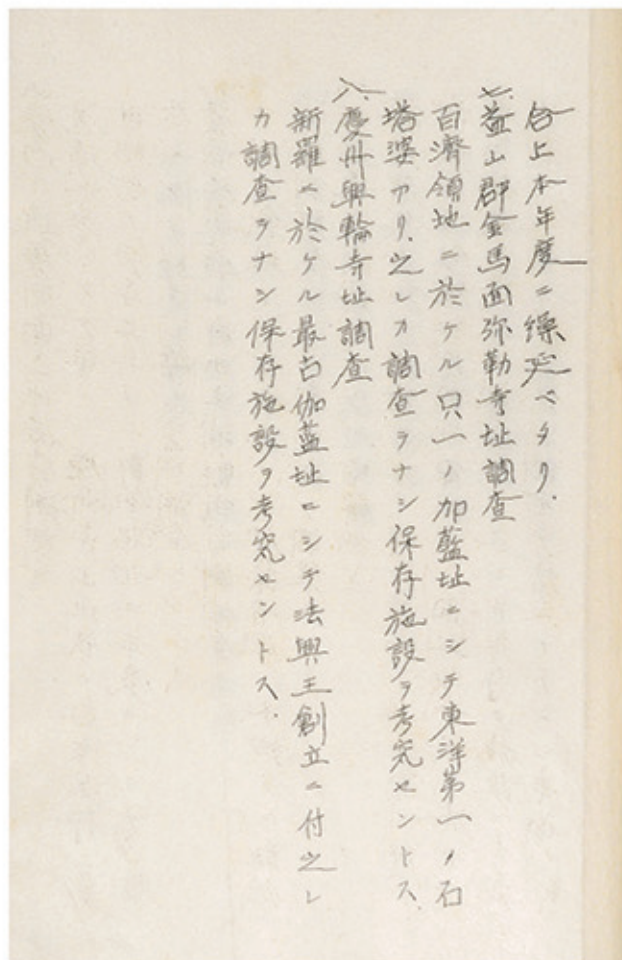 合上本年度ニ繰延ベタリ.
七.益山郡金馬面弥勒寺址調査
百濟領地ニ於ケル只一ノ加藍址ニシテ東洋第一ノ石
塔婆アリ.之レカ調査ヲナシ保存施設ヲ考究セントス.
八.慶州興輪寺址調査
新羅ニ於ケル最古伽藍址ニシテ法興王創立ニ付之レ
カ調査ヲナシ保存施設ヲ考究セントス.